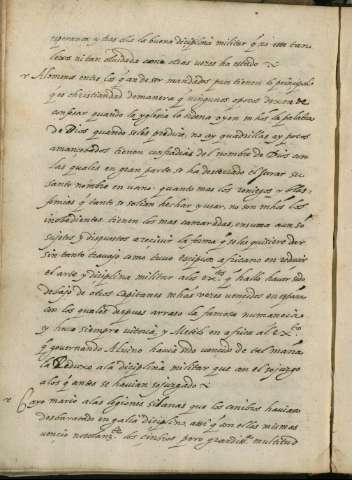 esperança, y tras ella la buena diciplina militar q̃ ni esta tan
lexos ni tan oluidada como otras vezes ha estado
Alomenos entre los q̃ an de ser mandados pues tienen lo principal
que es christiandad demanera q̃ ningunos o pocos dexan de
confesar quando la yglesia lo ordena oyen mhos la palabra
de Dios quando se les predica, no ay quadrillas ay pocos
amancebados tienen confradias del nombre de Dios con
las quales en gran parte se ha desterrado el jurar su
santo nombre en uano. quanto mas los reniegos y blas-
femias q̃ tanto se solian hechar y usar, no son mhos los
inobedientes tienen los mas camaradas, en suma aun so
sujetos y dispuestos a recivir la forma q̃ se les quisiere dar
sin tanto trauajo como tuuo scipion africano en reduzir
el arte y diciplina militar a los q̃ hallo hauer sido
debajo de otros capitanes mhas vezes vencidos en españa
con los quales despues arraso la famosa numancia
y huuo siempre victoria, y Metelo en africa al ex.to
q̃ gouernando Aluino hauia sido vencido de tal manera
la Reduxo a la diciplina militar que con el rejuzgo
a los q̃ antes se hauian rejuzgado
Cayo mario a las legiones que los cimbros hauian
desbaratado en galia diciplino, assi q̃ con ellas mismas
vencio no los cimbros pero grandis.ma multitud